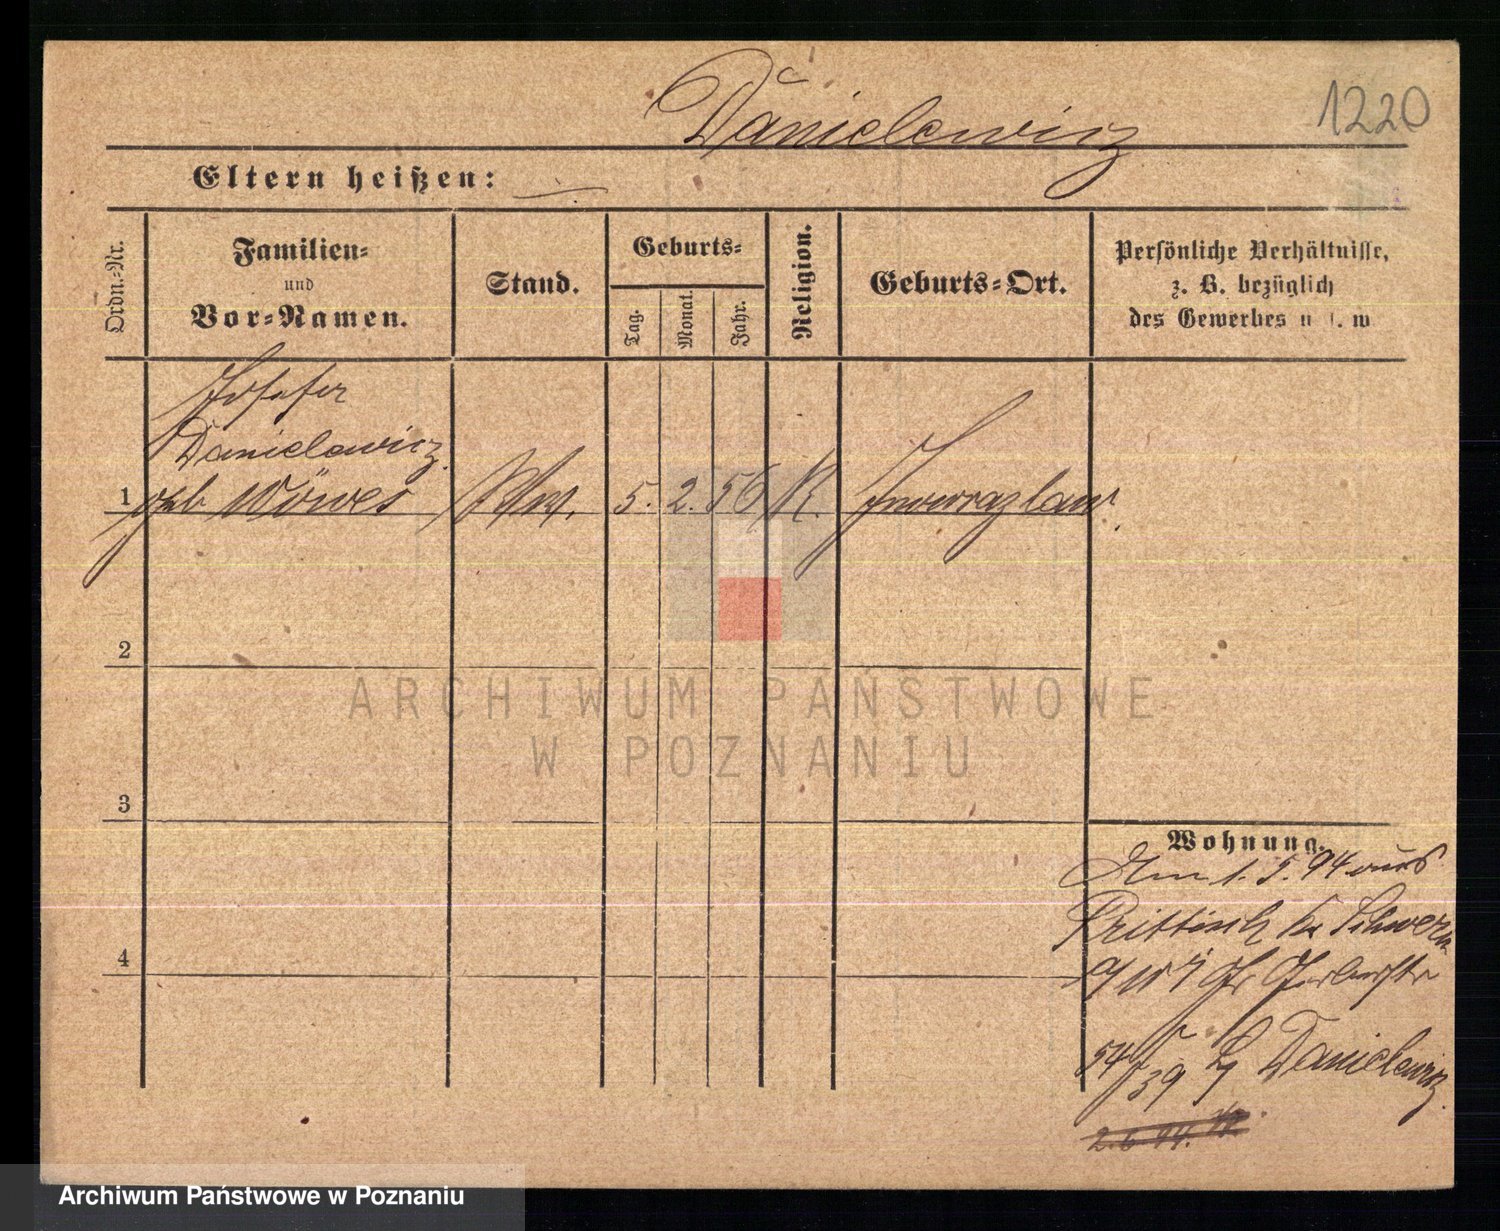 1220
Danielewicz
Eltern heißen: —
Ordn.-Nr.
Familien-
und
Vor-Namen.
Stand.
Geburts-
Tag.
Monat.
Jahr.
Religion.
Geburts-Ort.
Persönliche Verhältnisse,
z. B. bezüglich
des Gewerbes u. s. w
Josefa
Danielewicz
1 geb. Wöwes Ww. 5. 2. 56 K. Inowrazlaw
2
3
4
Wohnung.
Am 1. 5. 94 aus
Prittisch Kr Schwerin
a/W Gr Gerberstr
54 39 Danielewicz
2. 6 94.
ARCHIWUM PAŃSTWOWE
W POZNANIU
Archiwum Państwowe w Poznaniu